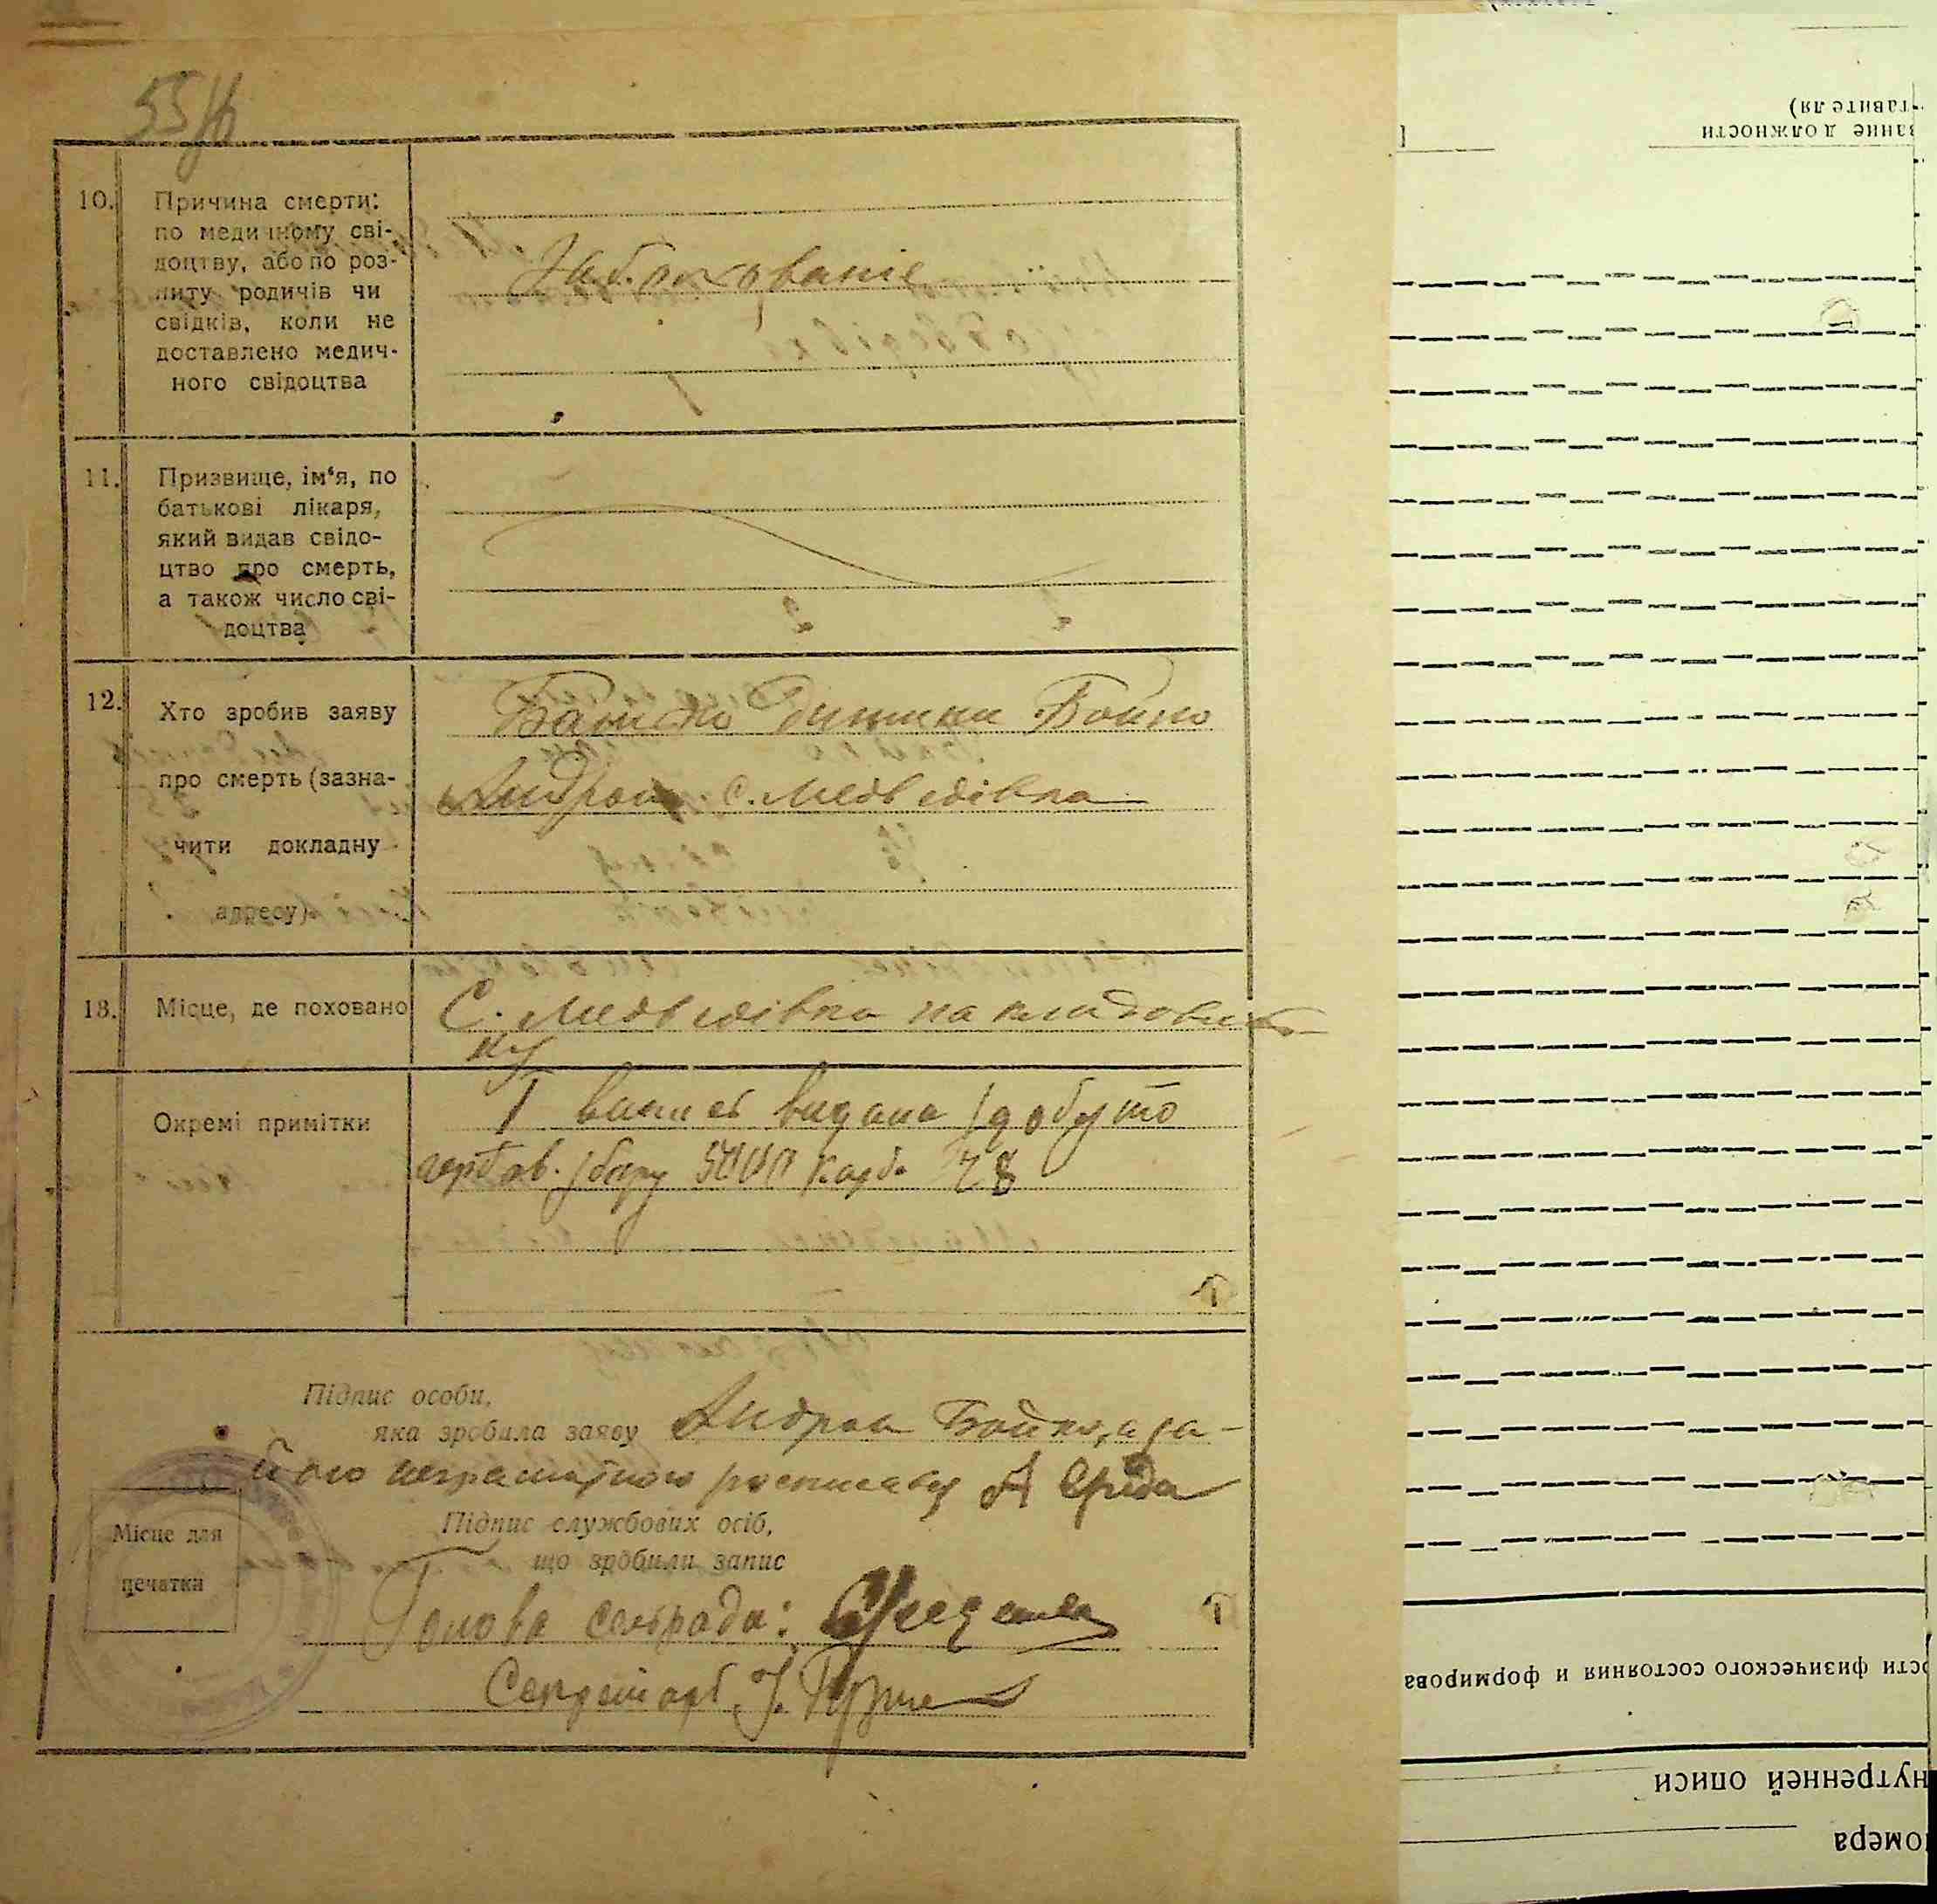 55
10. Причина смерти:
по медичному сві-
доцтву, або по роз-
питу родичів чи
свідків, коли не
доставлено медич-
ного свідоцтва
11. Призвище, ім‘я, по
батькові лікаря,
який видав свідо-
цтво про смерть,
а також число сві-
доцтва
12. Хто зробив заяву
про смерть (зазна-
чити докладну
адресу)
Батько Дитини Бойко
Андрон с. Медведівка
13. Місце, де поховано
С. Медведівка на кладовищ
ку
Окремі примітки
видана здобуто
гербов. збору 5000 карб.
Підпис особи,
яка зробила заяву Андрон Бойко, а за-
його неграмотного росписавсь
Підпис службових осіб,
що зробили запис
Місце для
печатки
Голова сельради:
Секретарь
тавителя)
вание должности
сти физического состояния и формирова
нутренней описи
омера